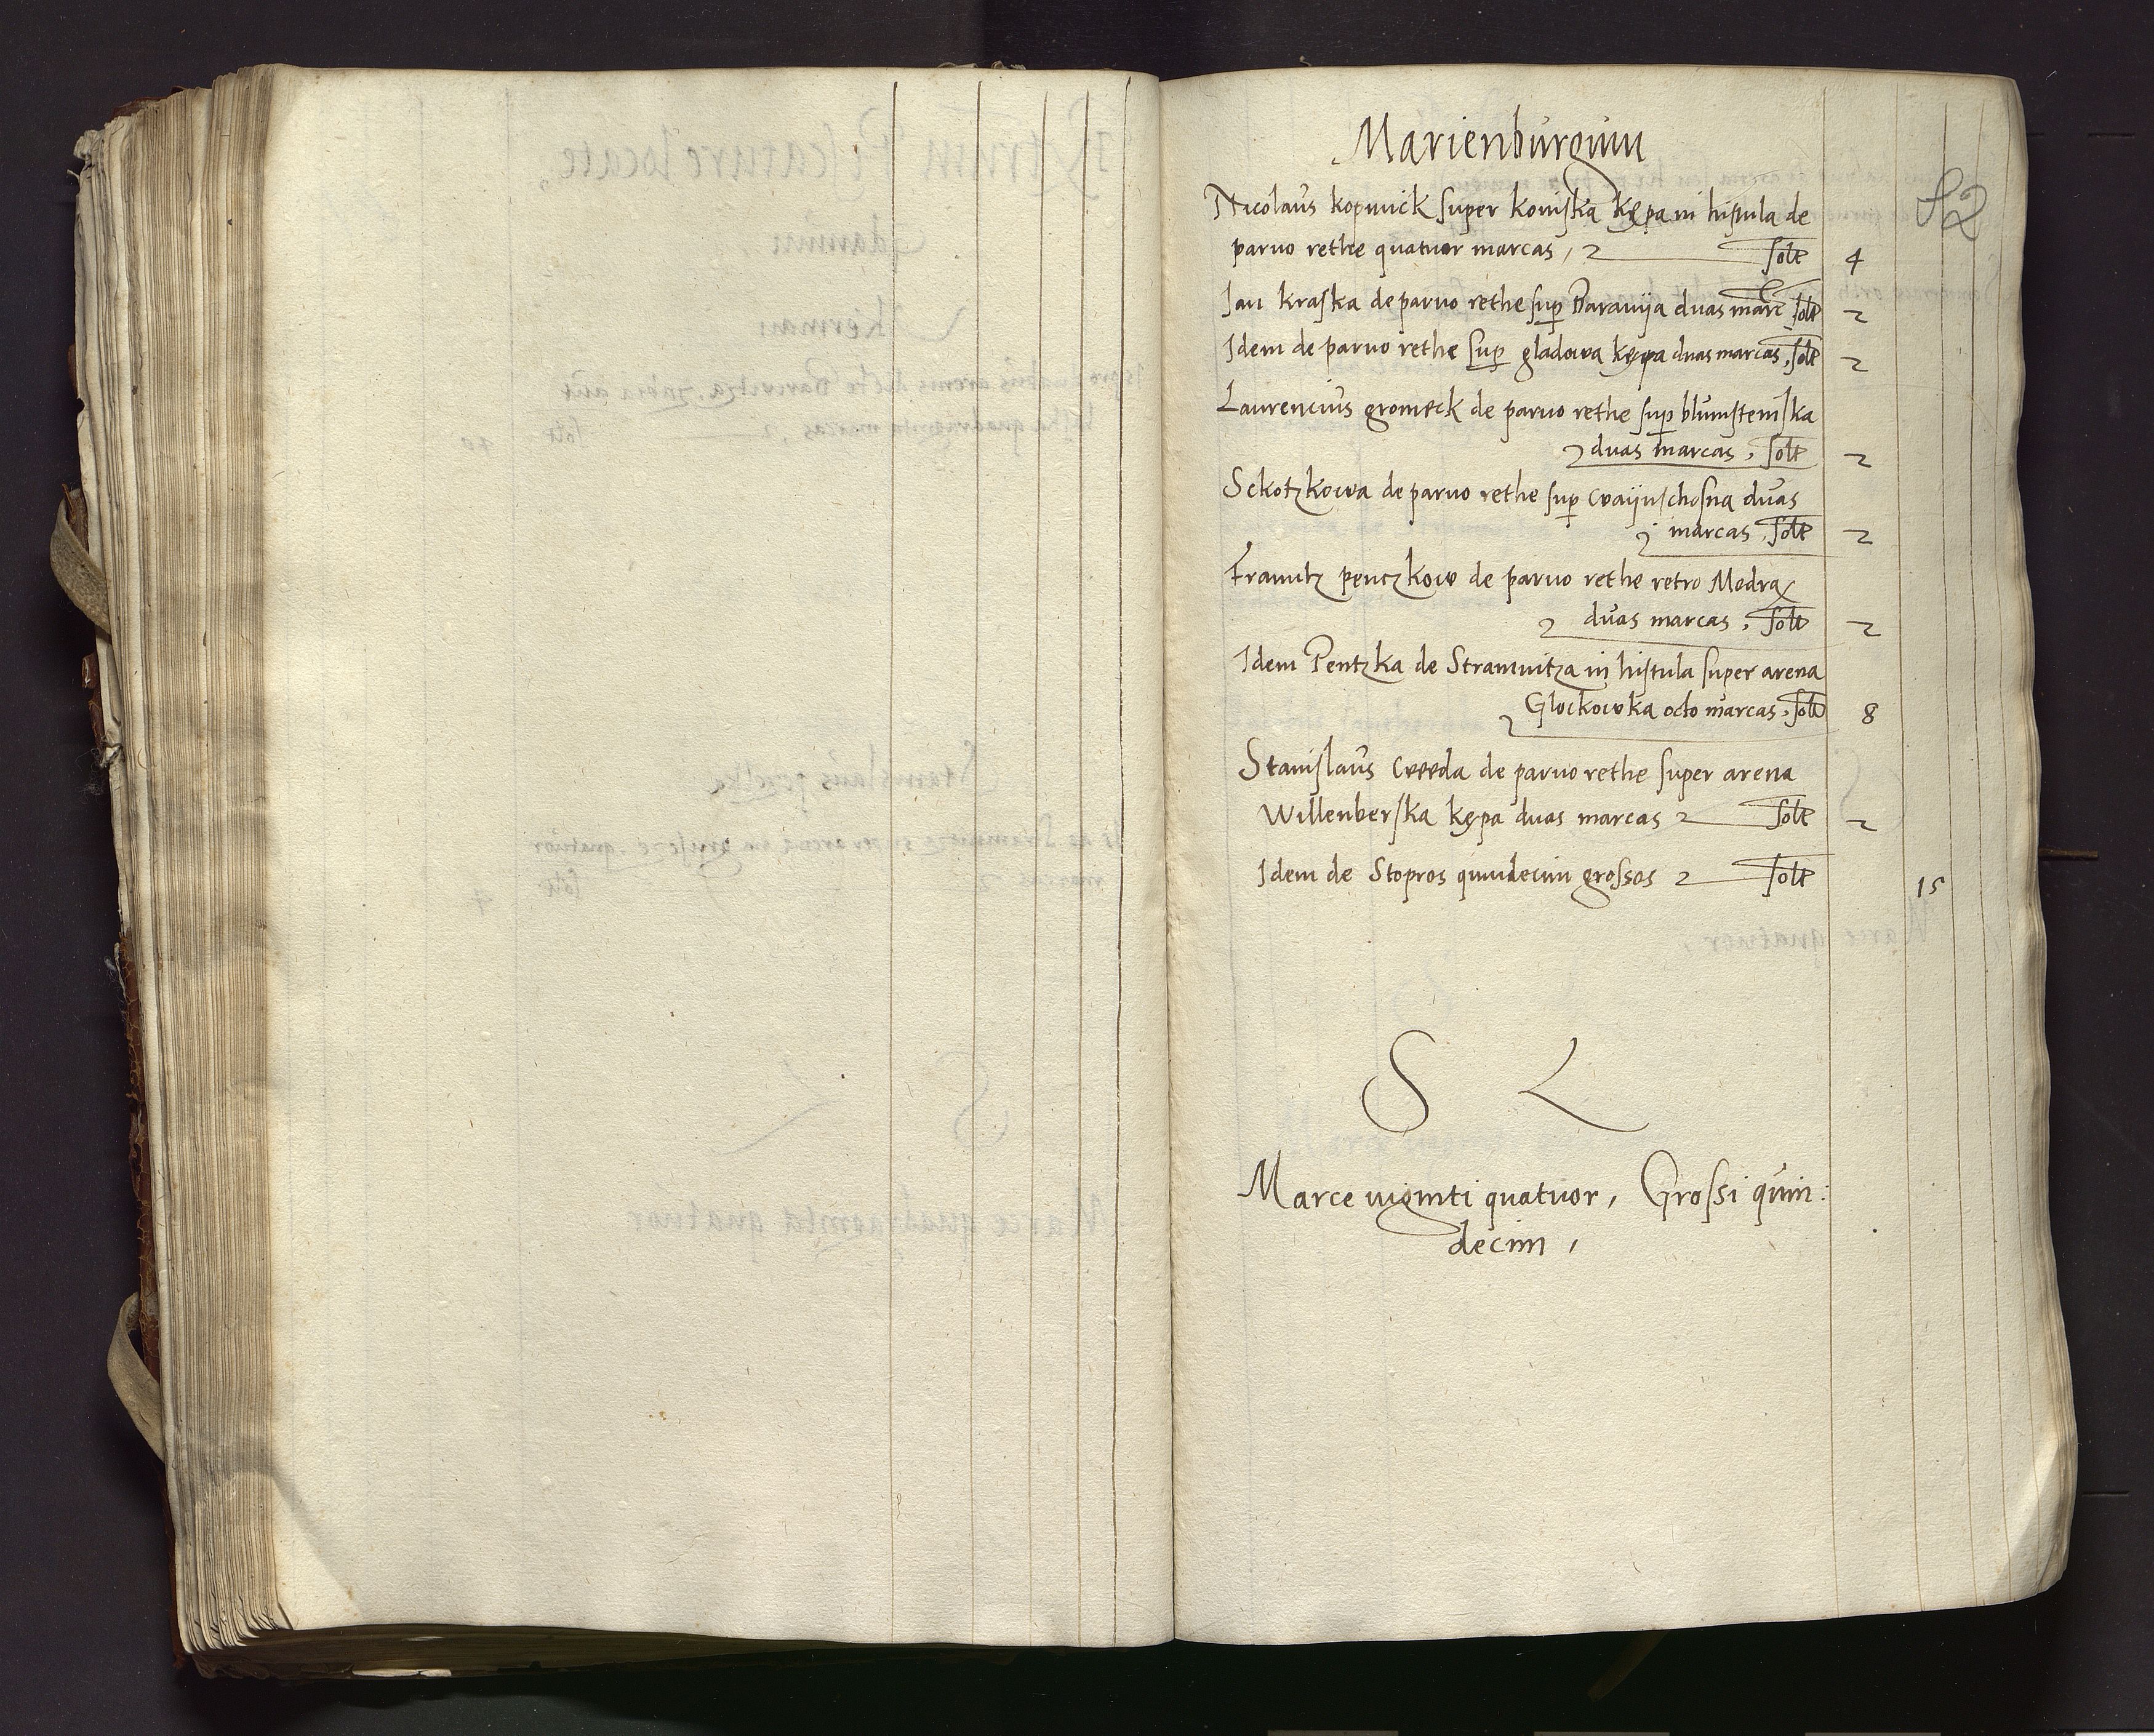 Marienburgum
82
Nicolaus kopnick super koniska kępa in histula de
paruo rethe quatuor marcas, solt 4
Jan kraska de paruo rethe sup Baranija duas marc solt 2
Idem de paruo rethe sup gladowa kępa duas marcas, solt 2
Laurencius gromeck de paruo rethe sup blumstemska
duas marcas, solt 2
Sckotzkowa de paruo rethe sup duas
marcas, solt 2
Frantz penczkow de paruo rethe retro Modra
duas marcas, solt 2
Idem Pentzka de Stramnitza in histula super arena
Glockowka octo marcas, solt 8
Stanislaus de paruo rethe super arena
Willenberska kępa duas marcas solt 2
Idem de Stopros quindecim grossos solt 15
S L
Marce uiginti quatuor, Grossi quin:
decim,